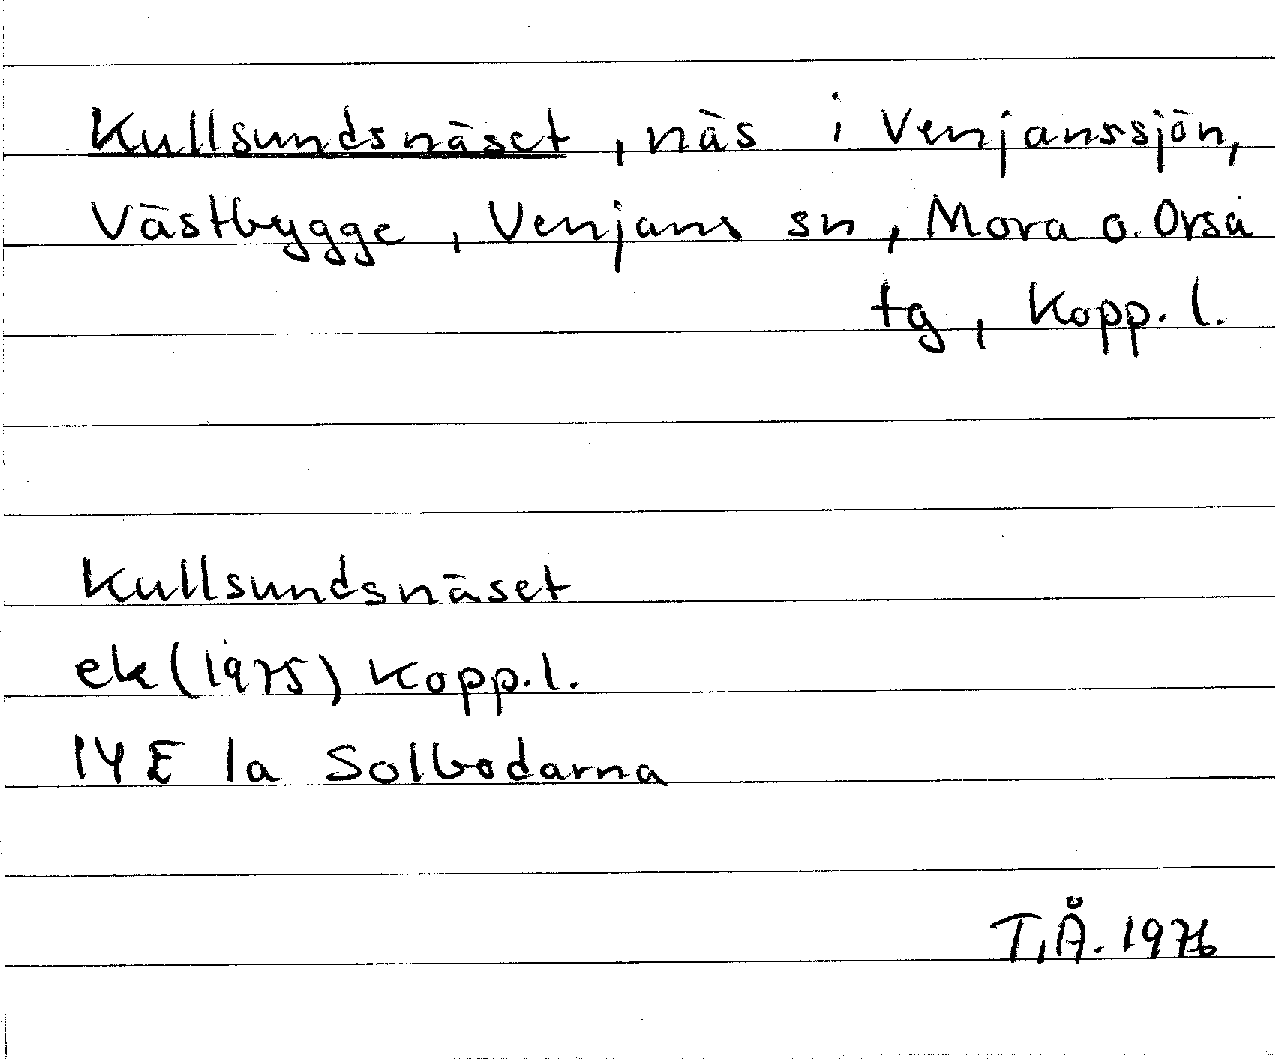 Kullsundsnäset, näs i Venjanssjön,
Västbygge, Venjans sn, Mora o. Orsa
tg, Kopp. l.
Kullsundsnäset
ek (1975) Kopp. l.
14 E 1a Solbodarna
T.Å. 1976